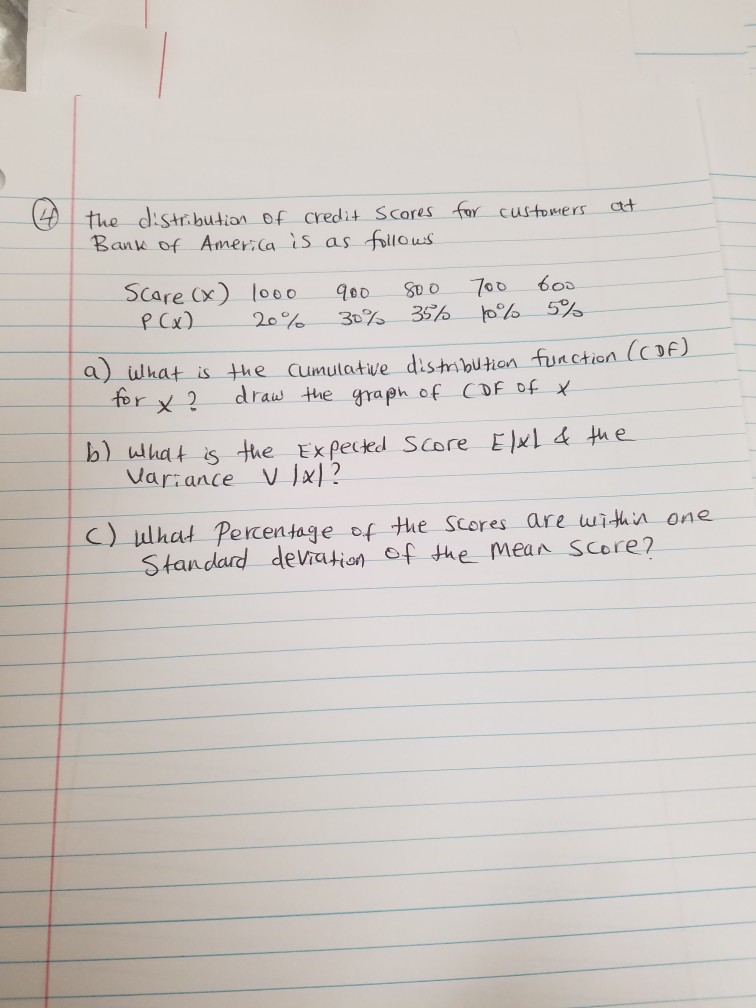 ④ the distribution of credit scores for customers at
Bank of America is as follows
Score (x) 1000 900 800 700 600
P(x) 20% 30% 35% 10% 5%
a) what is the cumulative distribution function (CDF)
for x? draw the graph of CDF of x
b) what is the Expected Score E|x| & the
Variance V|x|?
c) what Percentage of the scores are within one
Standard deviation of the mean score?